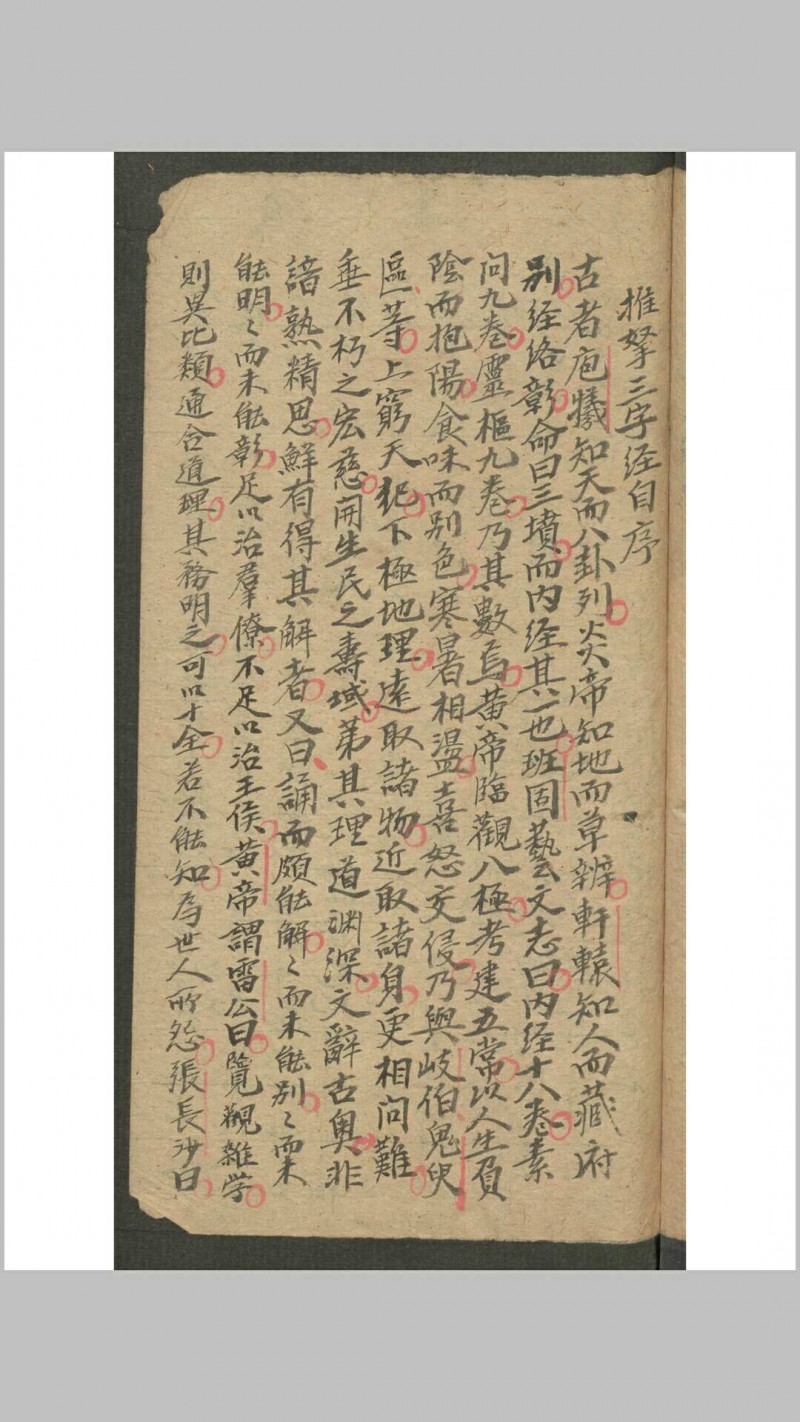 推拏三字经自序
古者庖犠知天而八卦列炎帝知地而草辨軒轅知人而藏府
别経络彰命曰三墳而内经其一也班固藝文志曰内经十八卷素
问九卷靈樞九卷乃其數焉黄帝臨觀八極考建五常以人生負
陰而抱陽食味而别色寒暑相盪喜怒交侵乃與岐伯鬼臾
區等上窮天纪下極地理遠取諸物近取諸身更相问難
垂不朽之宏慈開生民之壽域第其理道渊深文辭古奥非
諳熟精思鮮有得其解者又曰誦而頗能解〻而未能别〻而未
能明〻而未能彰足以治羣僚不足以治王侯黄帝謂雷公曰覽觀雜学
則異比類通合道理其務明之可以十全若不能知為世人所怨張長沙曰